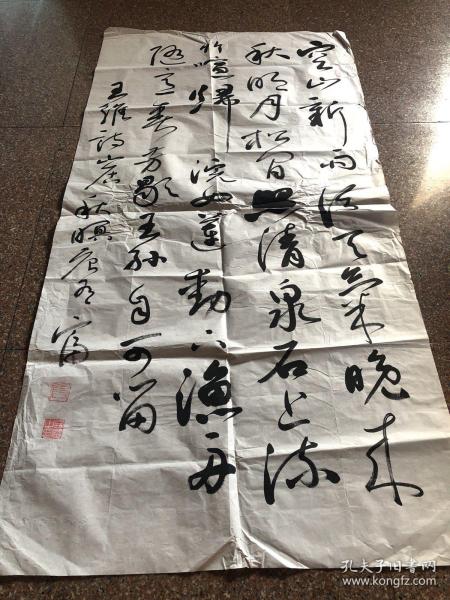 空山新雨后天气晚来
秋明月松间照清泉石上流
竹喧归浣女莲动下渔舟
随意春芳歇王孙自可留
王维诗山居秋暝
孔夫子旧书网
www.kongfz.com